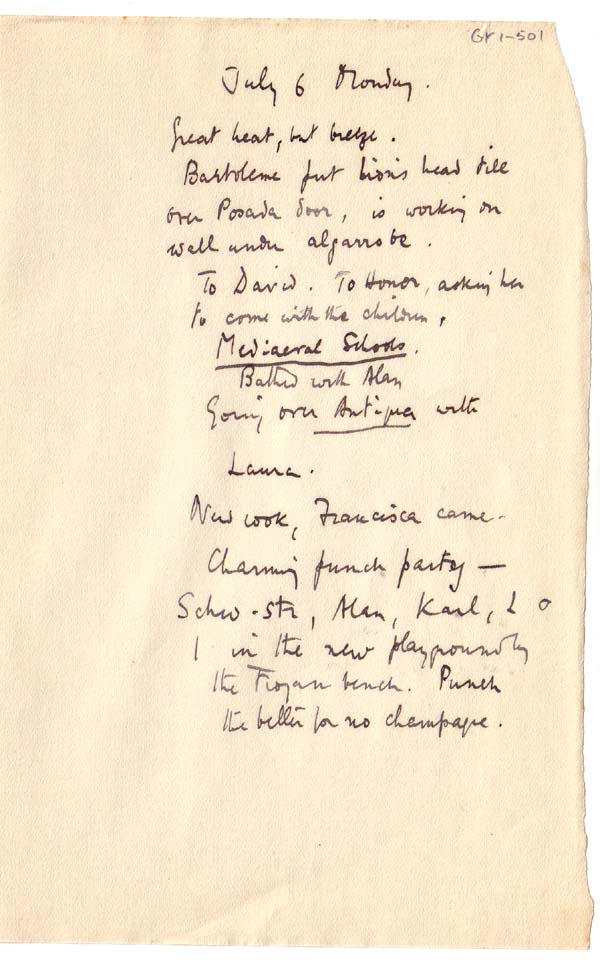 Gr1-501
July 6 Monday.
Great heat, but breeze.
Bartoleme put lion's head tile
over Posada door, is working on
wall under algarrobe.
To David. To Honor, asking her
to come with the children.
Mediaeval Schools.
Bathed with Alan
Going over Antigua with
Laura.
New cook, Francisca came.
Charming punch party —
Schw-str, Alan, Karl, L &
I in the new playground by
the Trojan bench. Punch
the better for no champagne.